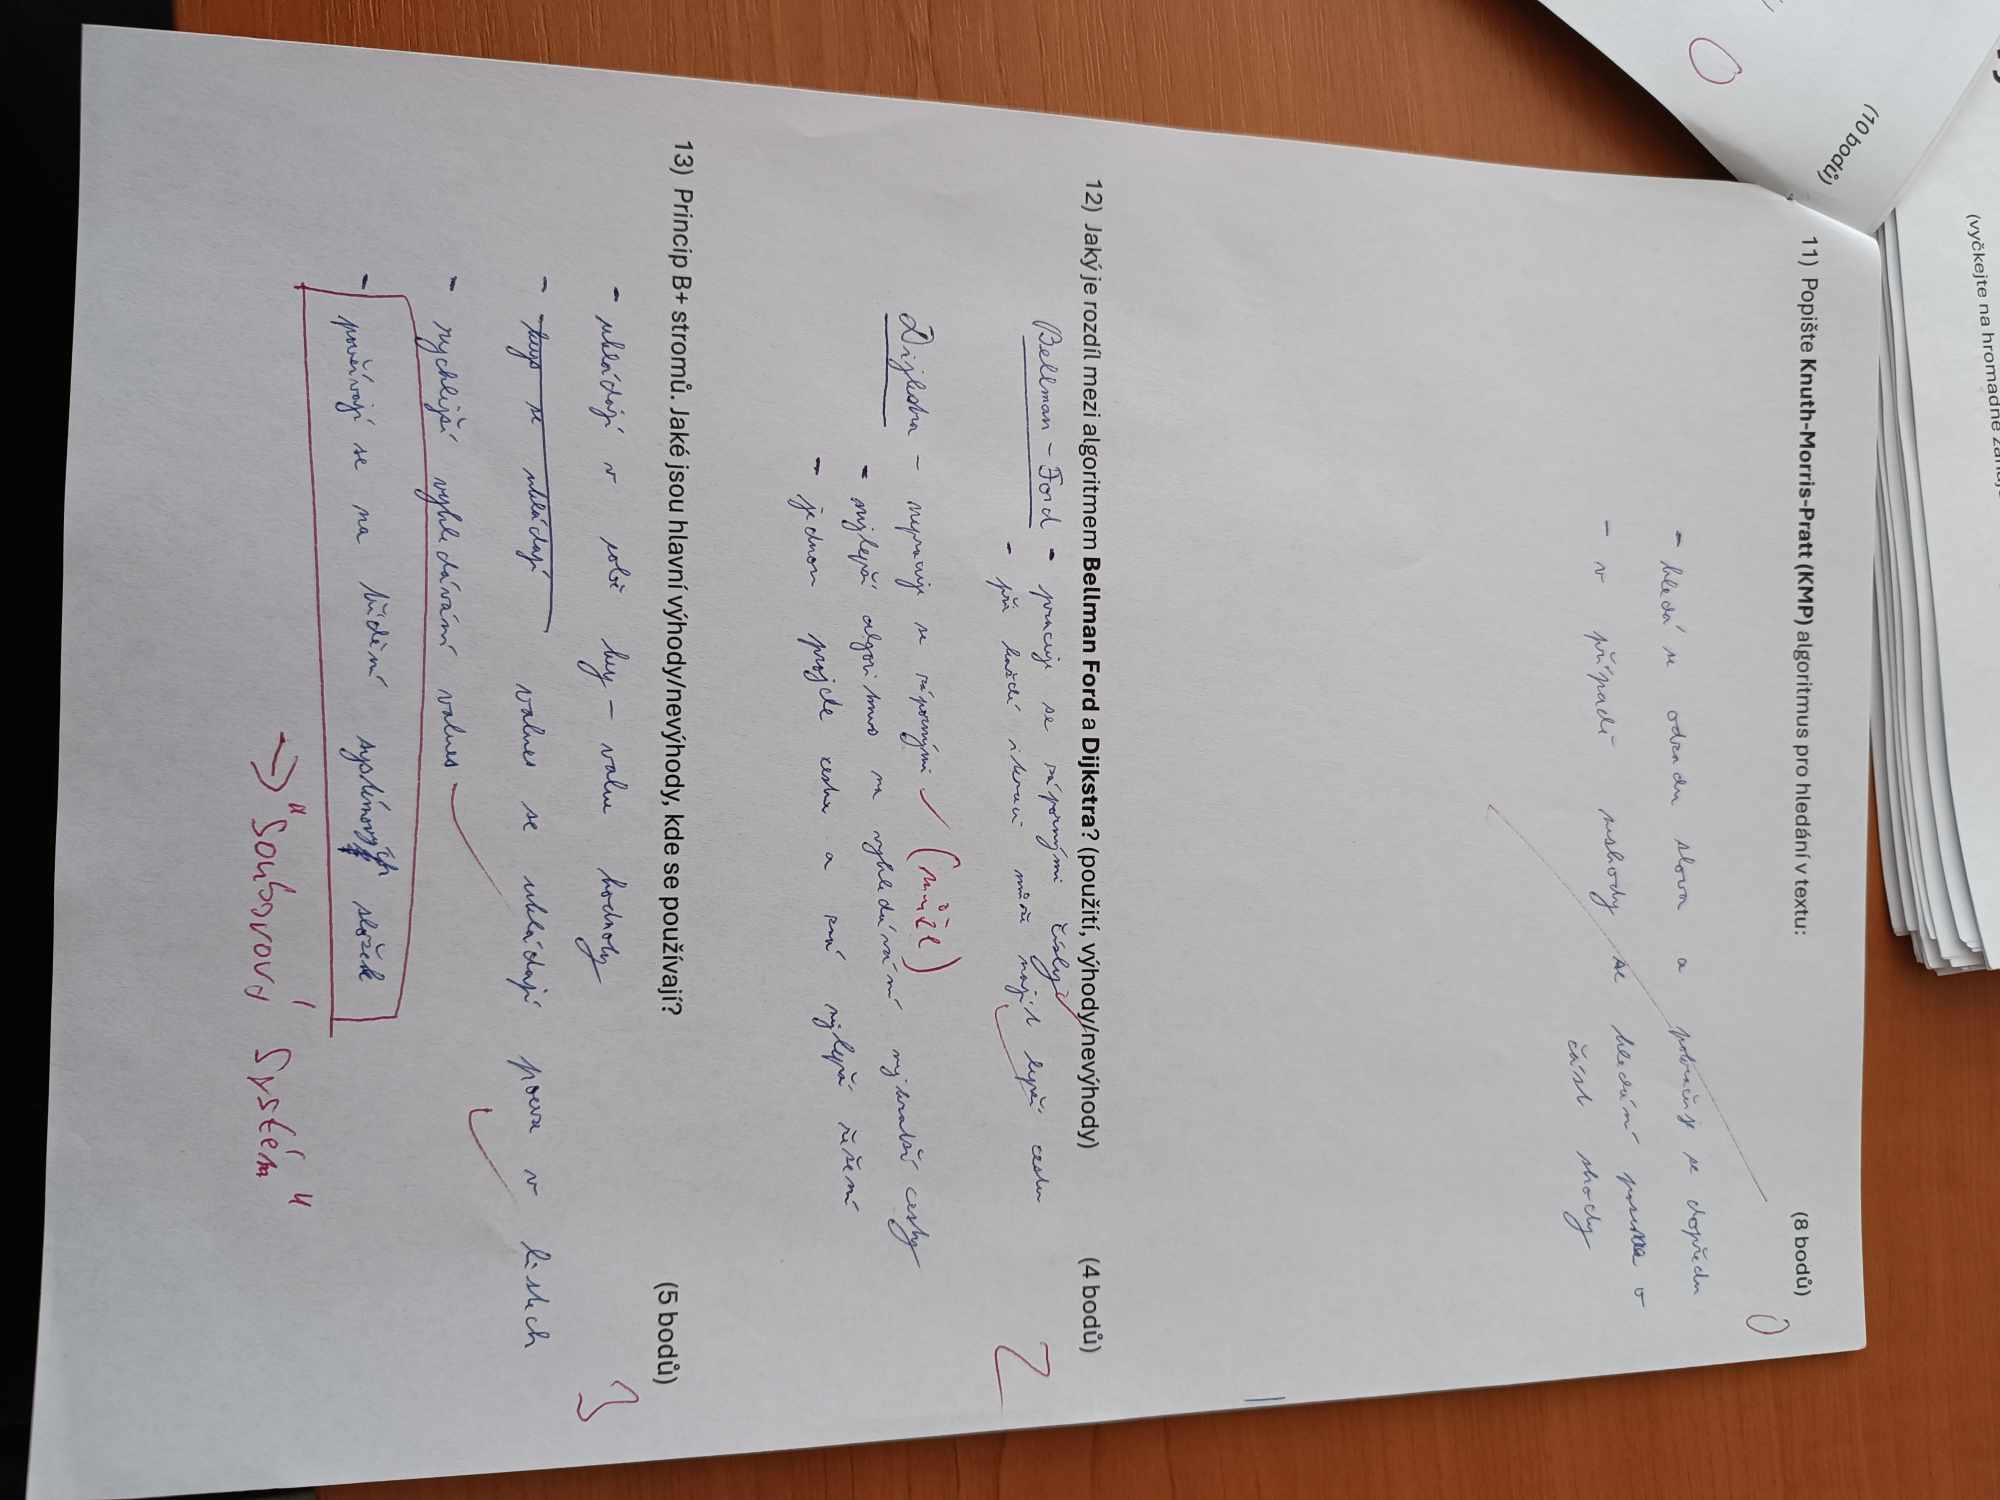 11) Popište Knuth-Morris-Pratt (KMP) algoritmus pro hledání v textu: (8 bodů)
0
- hledá se odzadu slova a pokračuje se dopředu
- v případě neshody se hledání posune o
část shody
12) Jaký je rozdíl mezi algoritmem Bellman Ford a Dijkstra? (použití, výhody/nevýhody) (4 bodů)
2
Bellman-Ford - pracuje se zápornými čísly
- při každé iteraci může najít lepší cestu
Dijkstra - nepracuje se zápornými (může)
- nejlepší algoritmus na vyhledávání nejkratší cesty
- jednou projde cestu a zná nejlepší řešení
13) Princip B+ stromů. Jaké jsou hlavní výhody/nevýhody, kde se používají? (5 bodů)
3
- ukládají v sobě key - value hodnoty
- keys se ukládají values se ukládají pouze v listech
- rychlejší vyhledávání values
- používají se na třídění systémových složek
→ "souborový systém"
(10 bodů)
0
(vyčkejte na hromadné